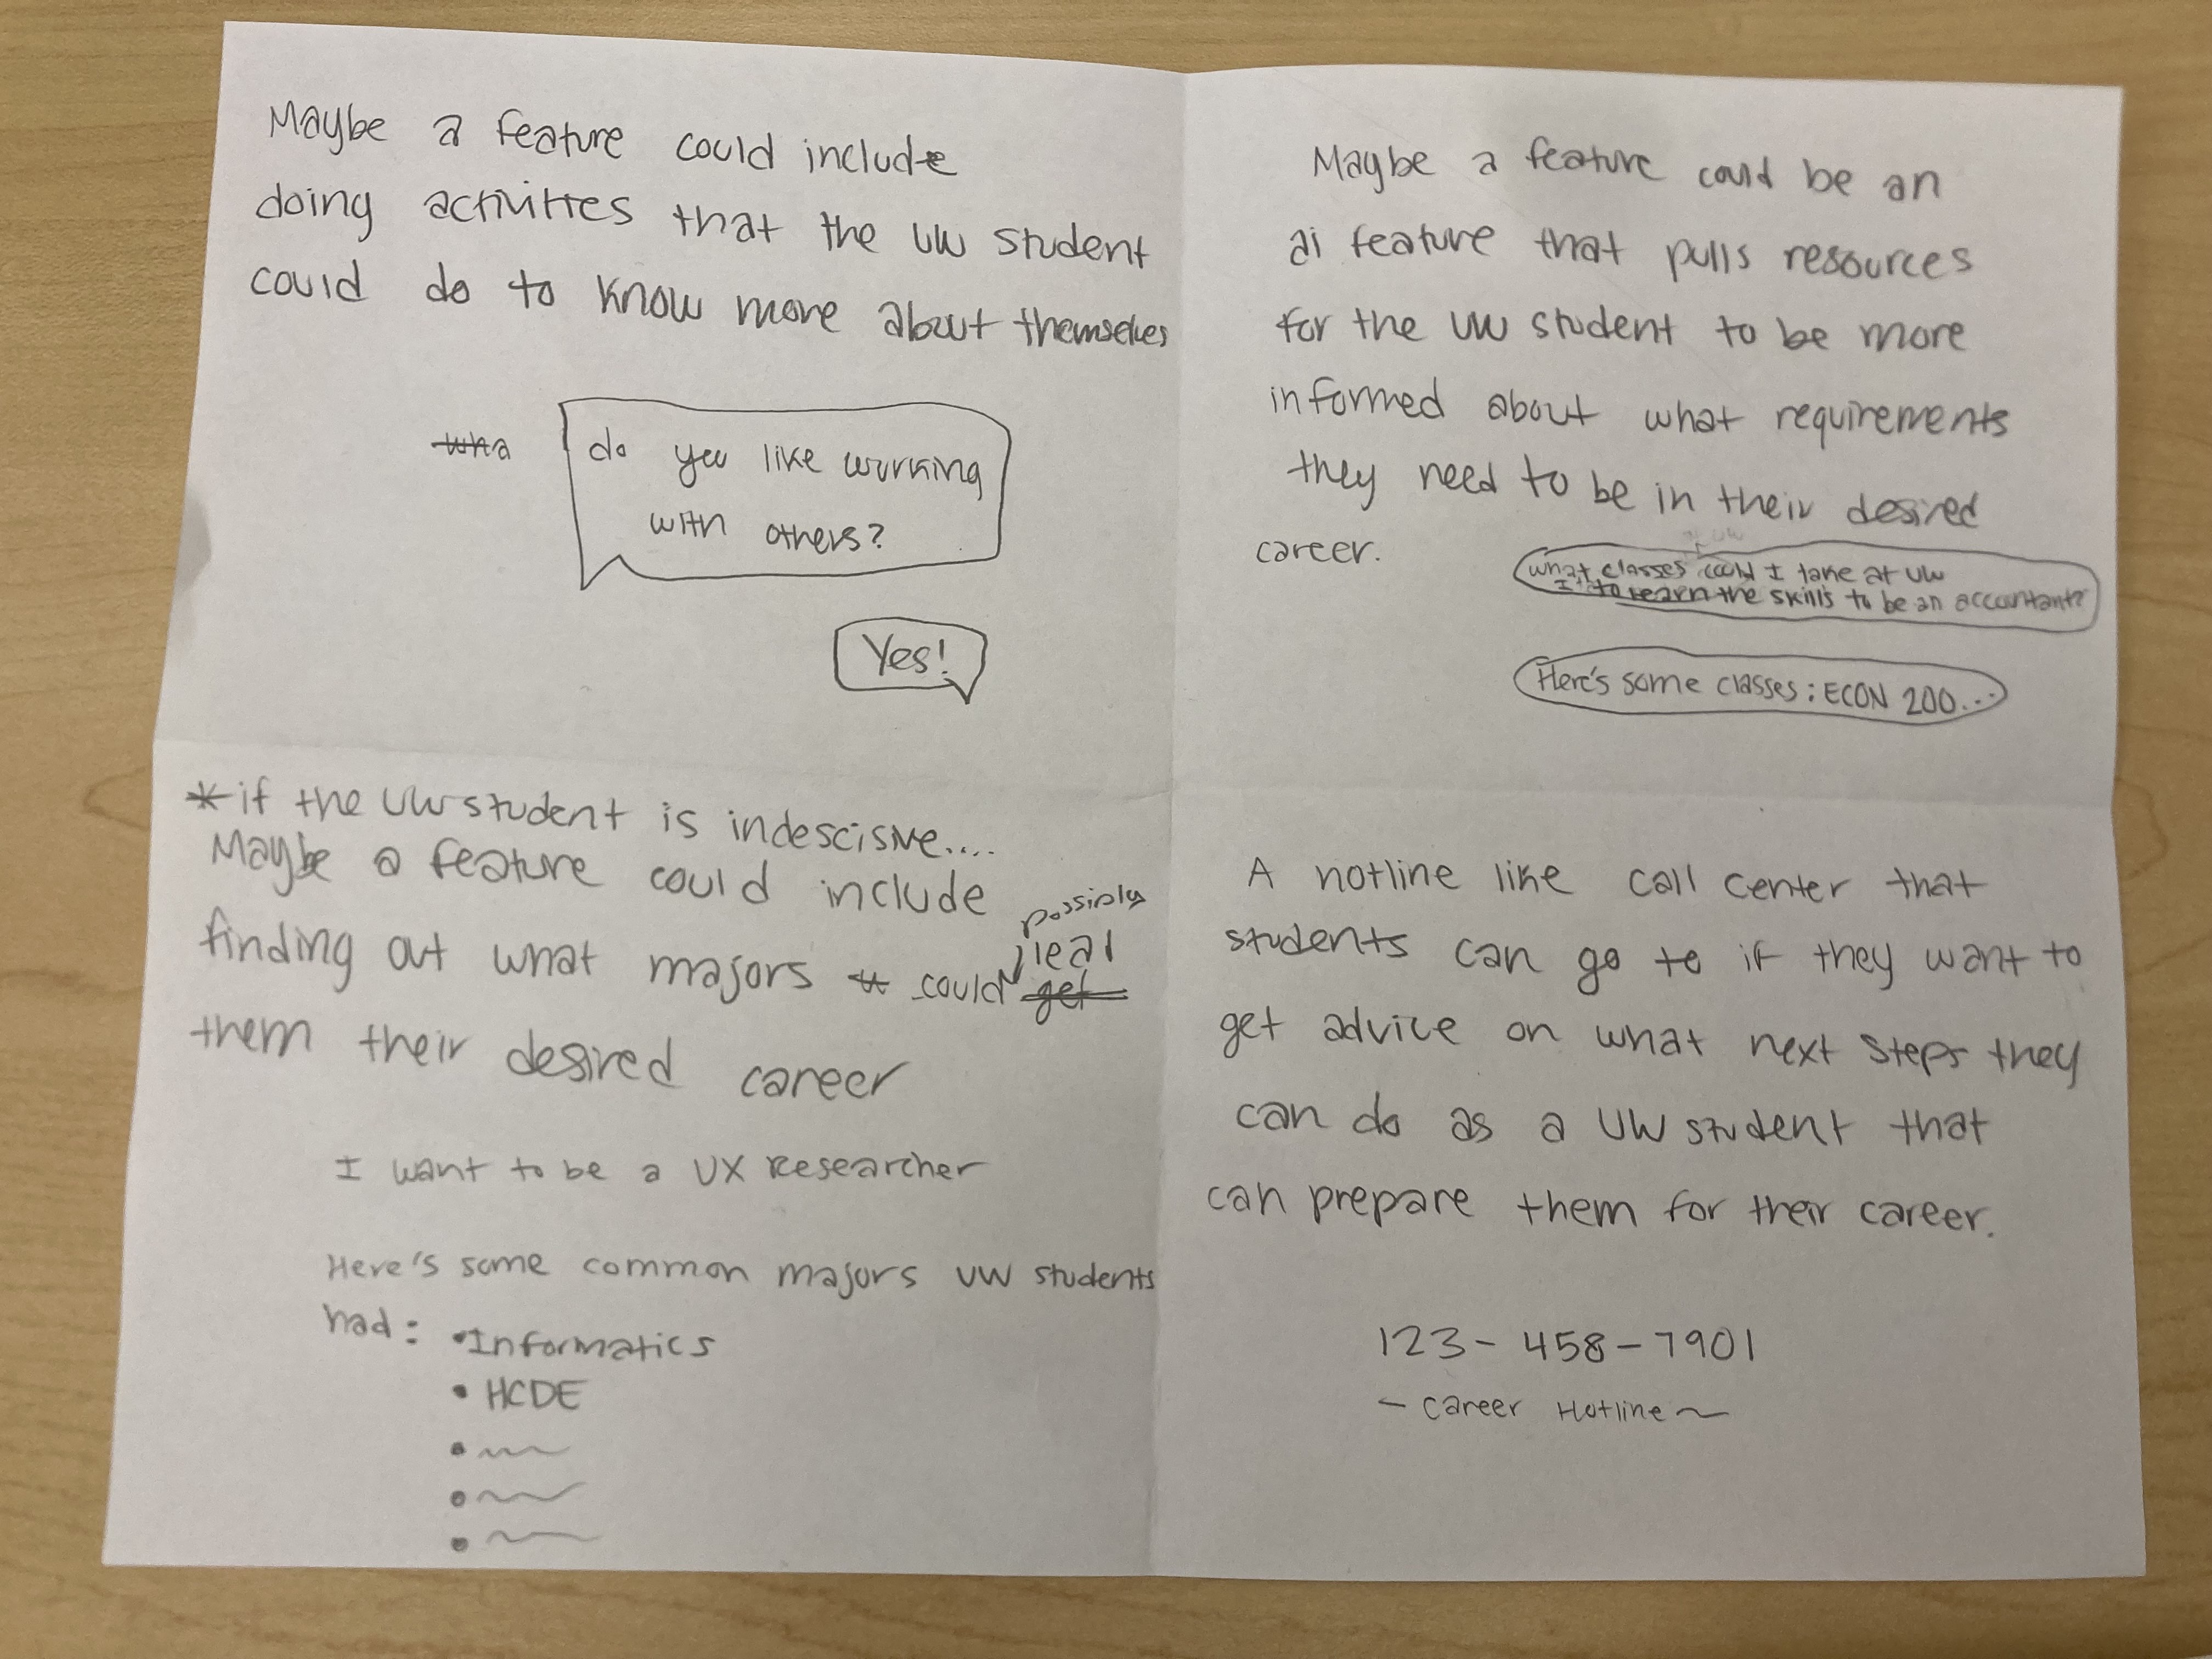 Maybe a feature could include
doing activities that the UW student
could do to know more about themselves
wha
do you like working
with others?
Yes!
Maybe a feature could be an
ai feature that pulls resources
for the UW student to be more
informed about what requirements
they need to be in their desired
career.
What classes could I take at UW
to learn the skills to be an accountant?
Here's some classes: ECON 200...
*if the UW student is indescisive....
Maybe a feature could include
possibly
finding out what majors could lead
get
them their desired career
I want to be a UX Researcher
Here's some common majors UW students
had: •Informatics
• HCDE
A hotline like call center that
students can go to if they want to
get advice on what next steps they
can do as a UW student that
can prepare them for their career.
123-458-7901
- Career Hotline ~